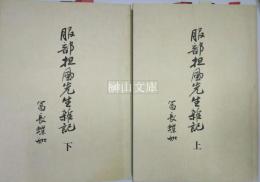 服部担風先生雜記
上
冨長蝶如
服部担風先生雜記
下
冨長蝶如
榊山文庫